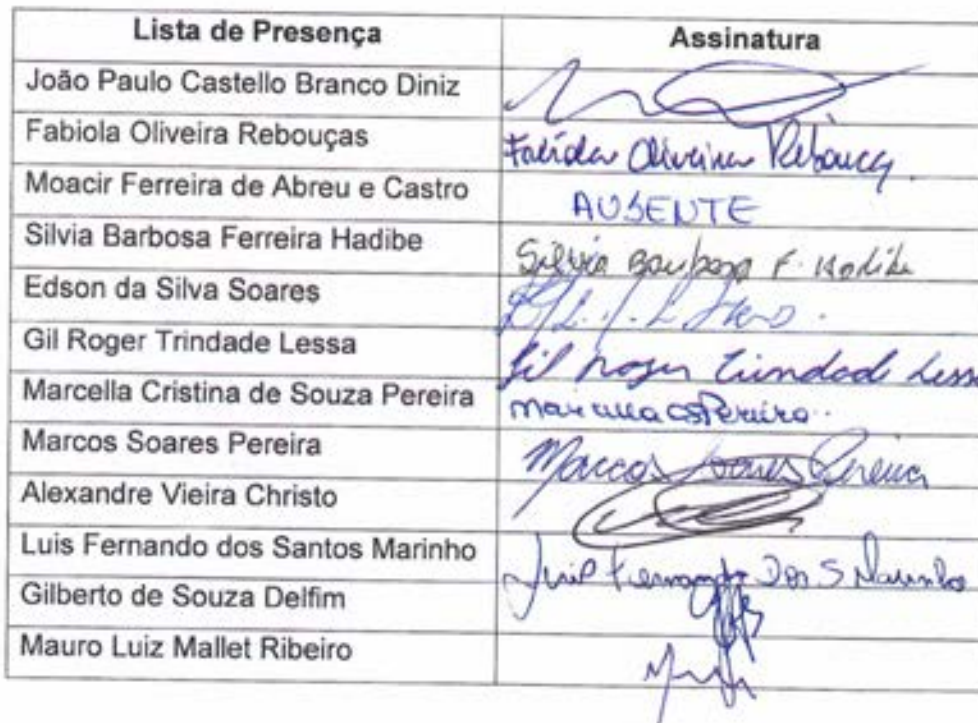 Lista de Presença Assinatura
João Paulo Castello Branco Diniz
Fabiola Oliveira Rebouças Fabíola Oliveira Rebouças
Moacir Ferreira de Abreu e Castro AUSENTE
Silvia Barbosa Ferreira Hadibe Silvia Barbosa F. Hadibe
Edson da Silva Soares
Gil Roger Trindade Lessa Gil Roger Trindade Lessa
Marcella Cristina de Souza Pereira Marcella CSPereira
Marcos Soares Pereira Marcos Soares Pereira
Alexandre Vieira Christo
Luis Fernando dos Santos Marinho Luis Fernando Dos S Marinho
Gilberto de Souza Delfim
Mauro Luiz Mallet Ribeiro